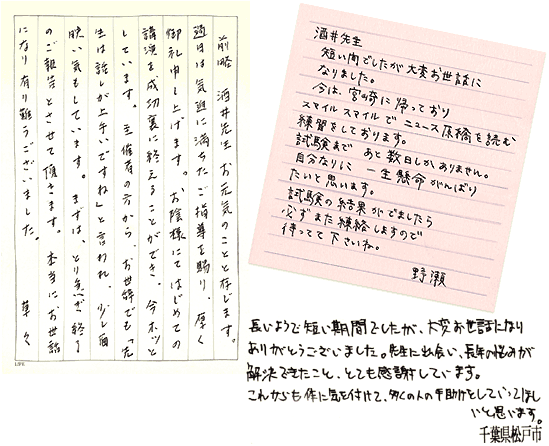 前略 酒井先生お元気のことと存じます。
過日は気迫に満ちたご指導を賜り、厚く
御礼申し上げます。お陰様にてはじめての
講演を成功裏に終えることができ、今ホッと
しています。主催者の方から、お世辞でも「先
生は話しが上手いですね」と言われ、少し面
映い気もしています。まずは、とり急ぎ終了
のご報告とさせて頂きます。本当にお世話
になり有り難うございました。 草々
LIFE
酒井先生
短い間でしたが大変お世話に
なりました。
今は、宮崎に帰っており
スマイルスマイルでニュース原稿を読む
練習をしております。
試験まであと数日しかありません。
自分なりに一生懸命がんばり
たいと思います。
試験の結果がでましたら
必ずまた連絡しますので
待ってて下さいね。
野瀬
長いようで短い期間でしたが、大変お世話になり
ありがとうございました。先生に出会い、長年の悩みが
解決できたこと、とても感謝しています。
これからも体に気を付けて、多くの人の手助けをしていってほし
いと思います。
千葉県松戸市